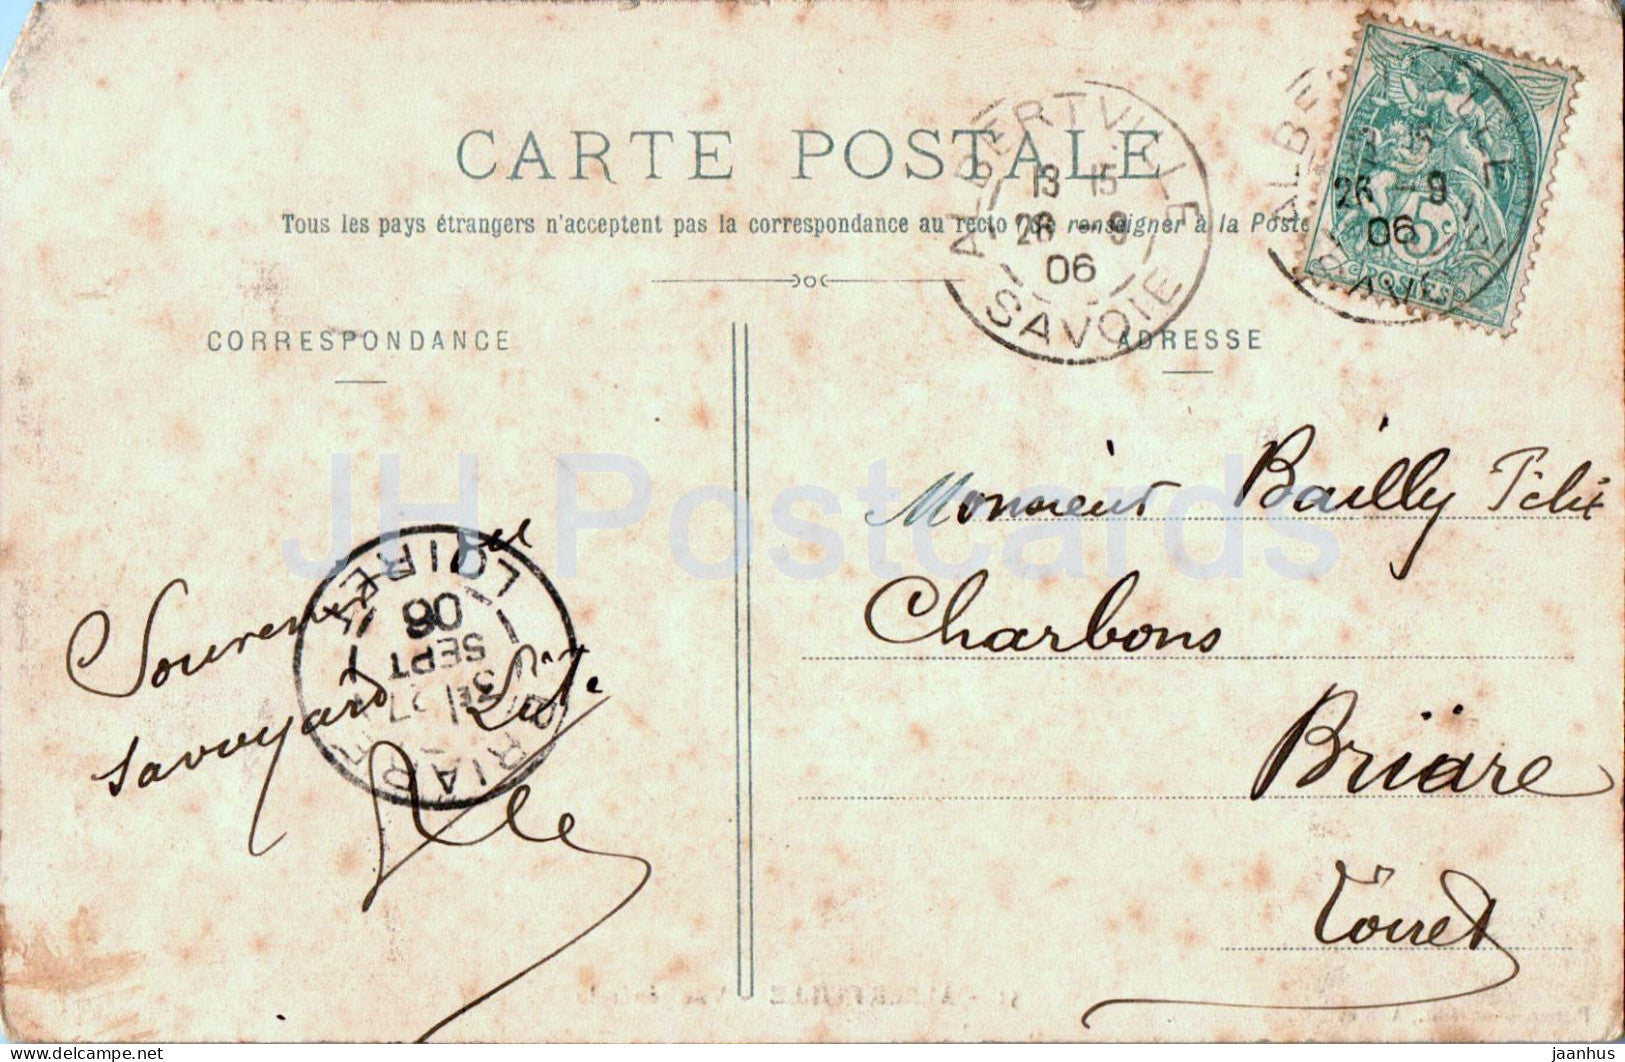 CARTE POSTALE
Tous les pays étrangers n'acceptent pas la correspondance au recto (Se renseigner à la Poste
CORRESPONDANCE
ADRESSE
ALBERTVILLE
13 15
26 - 9
06
SAVOIE
26 - 9
06
5c
POSTES
Monsieur Bailly Félix
Charbons
Briare
Loiret
Souvenir
savoyard
BRIARE
3E
27
SEPT
06
LOIRET
JH Postcards
ALBERTVILLE
delcampe.net
jaanhus